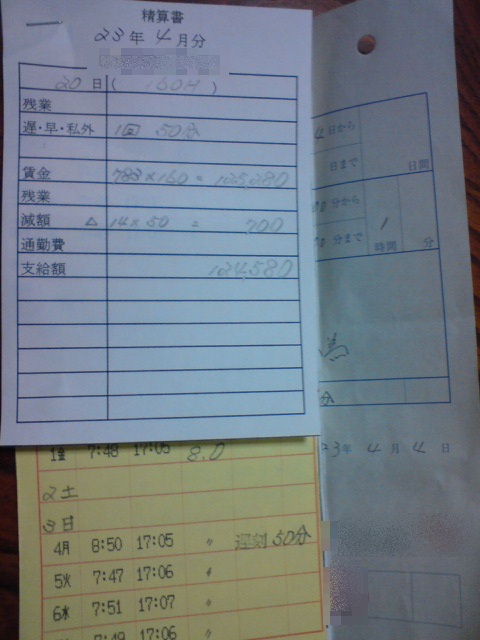 精算書
23年4月分
20日(160H)
残業
遅・早・私外 1回 50分
賃金 783×160 = 125,280
残業
減額 △ 14×50 = 700
通勤費
支給額 124,580
4日から
日まで 日間
分から
分まで 1時間 分
23年 4月 4日
1金 7:48 17:05 8.0
2土
3日
4月 8:50 17:05 〃 遅刻50分
5火 7:47 17:06 〃
6水 7:51 17:07 〃
7:49 17:06 〃